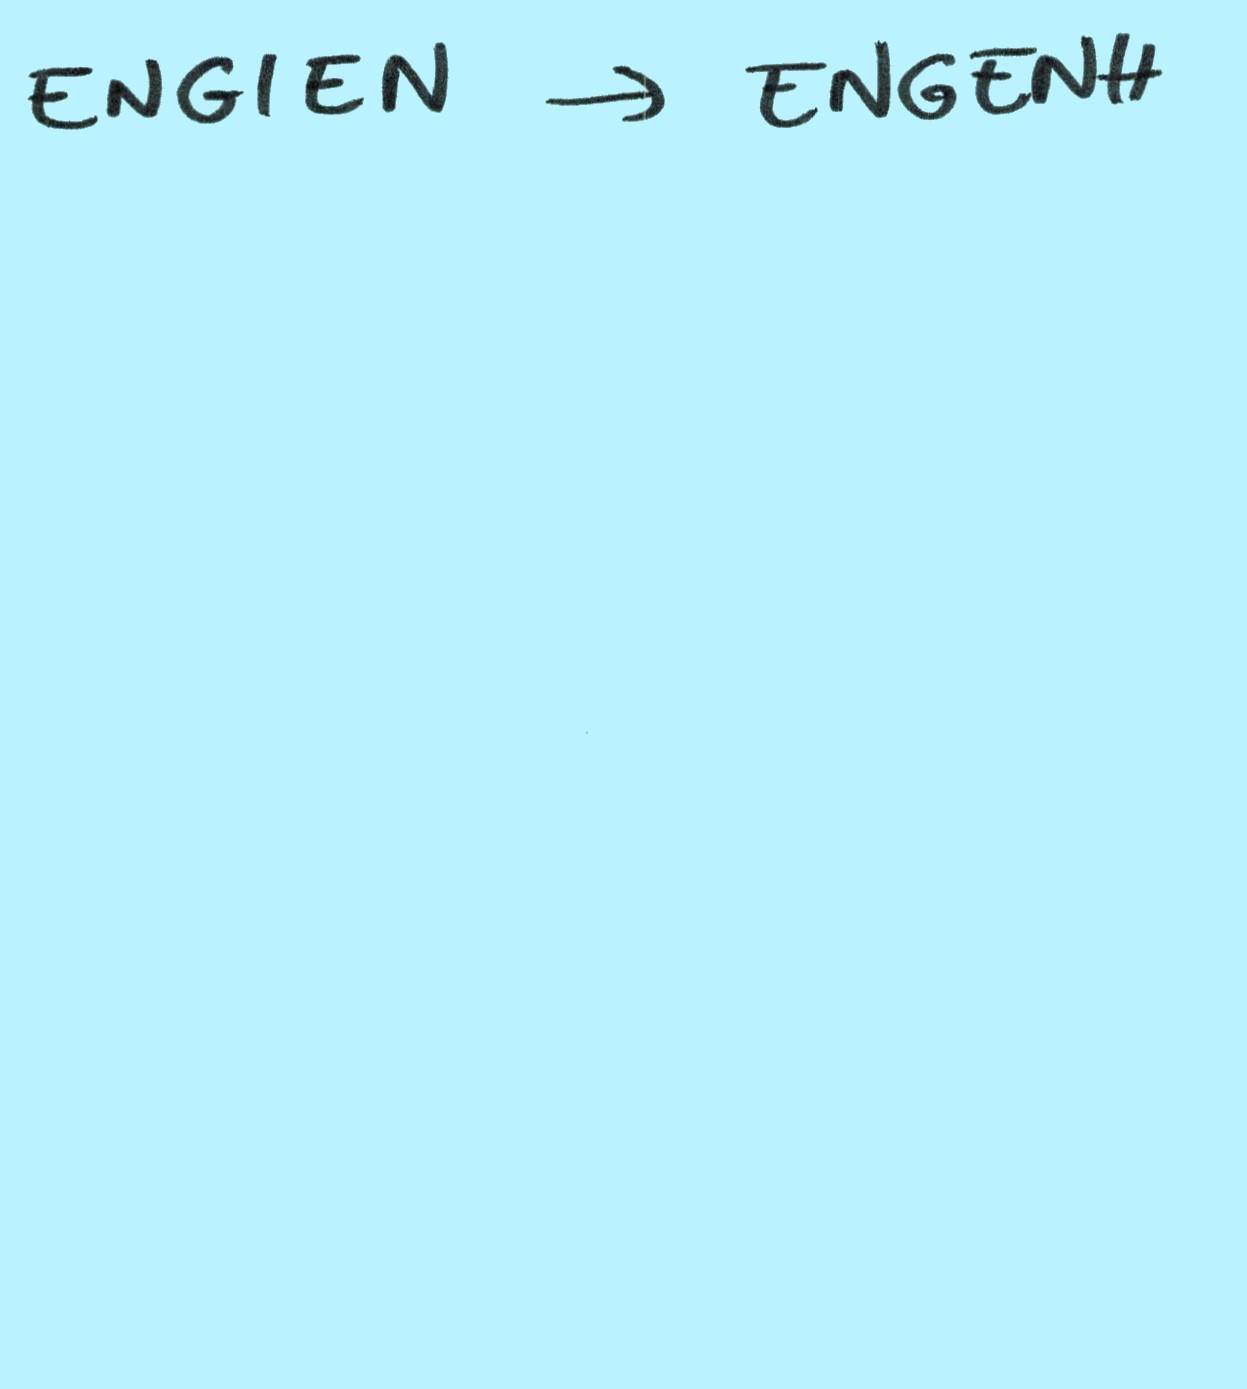 ENGIEN → ENGENH